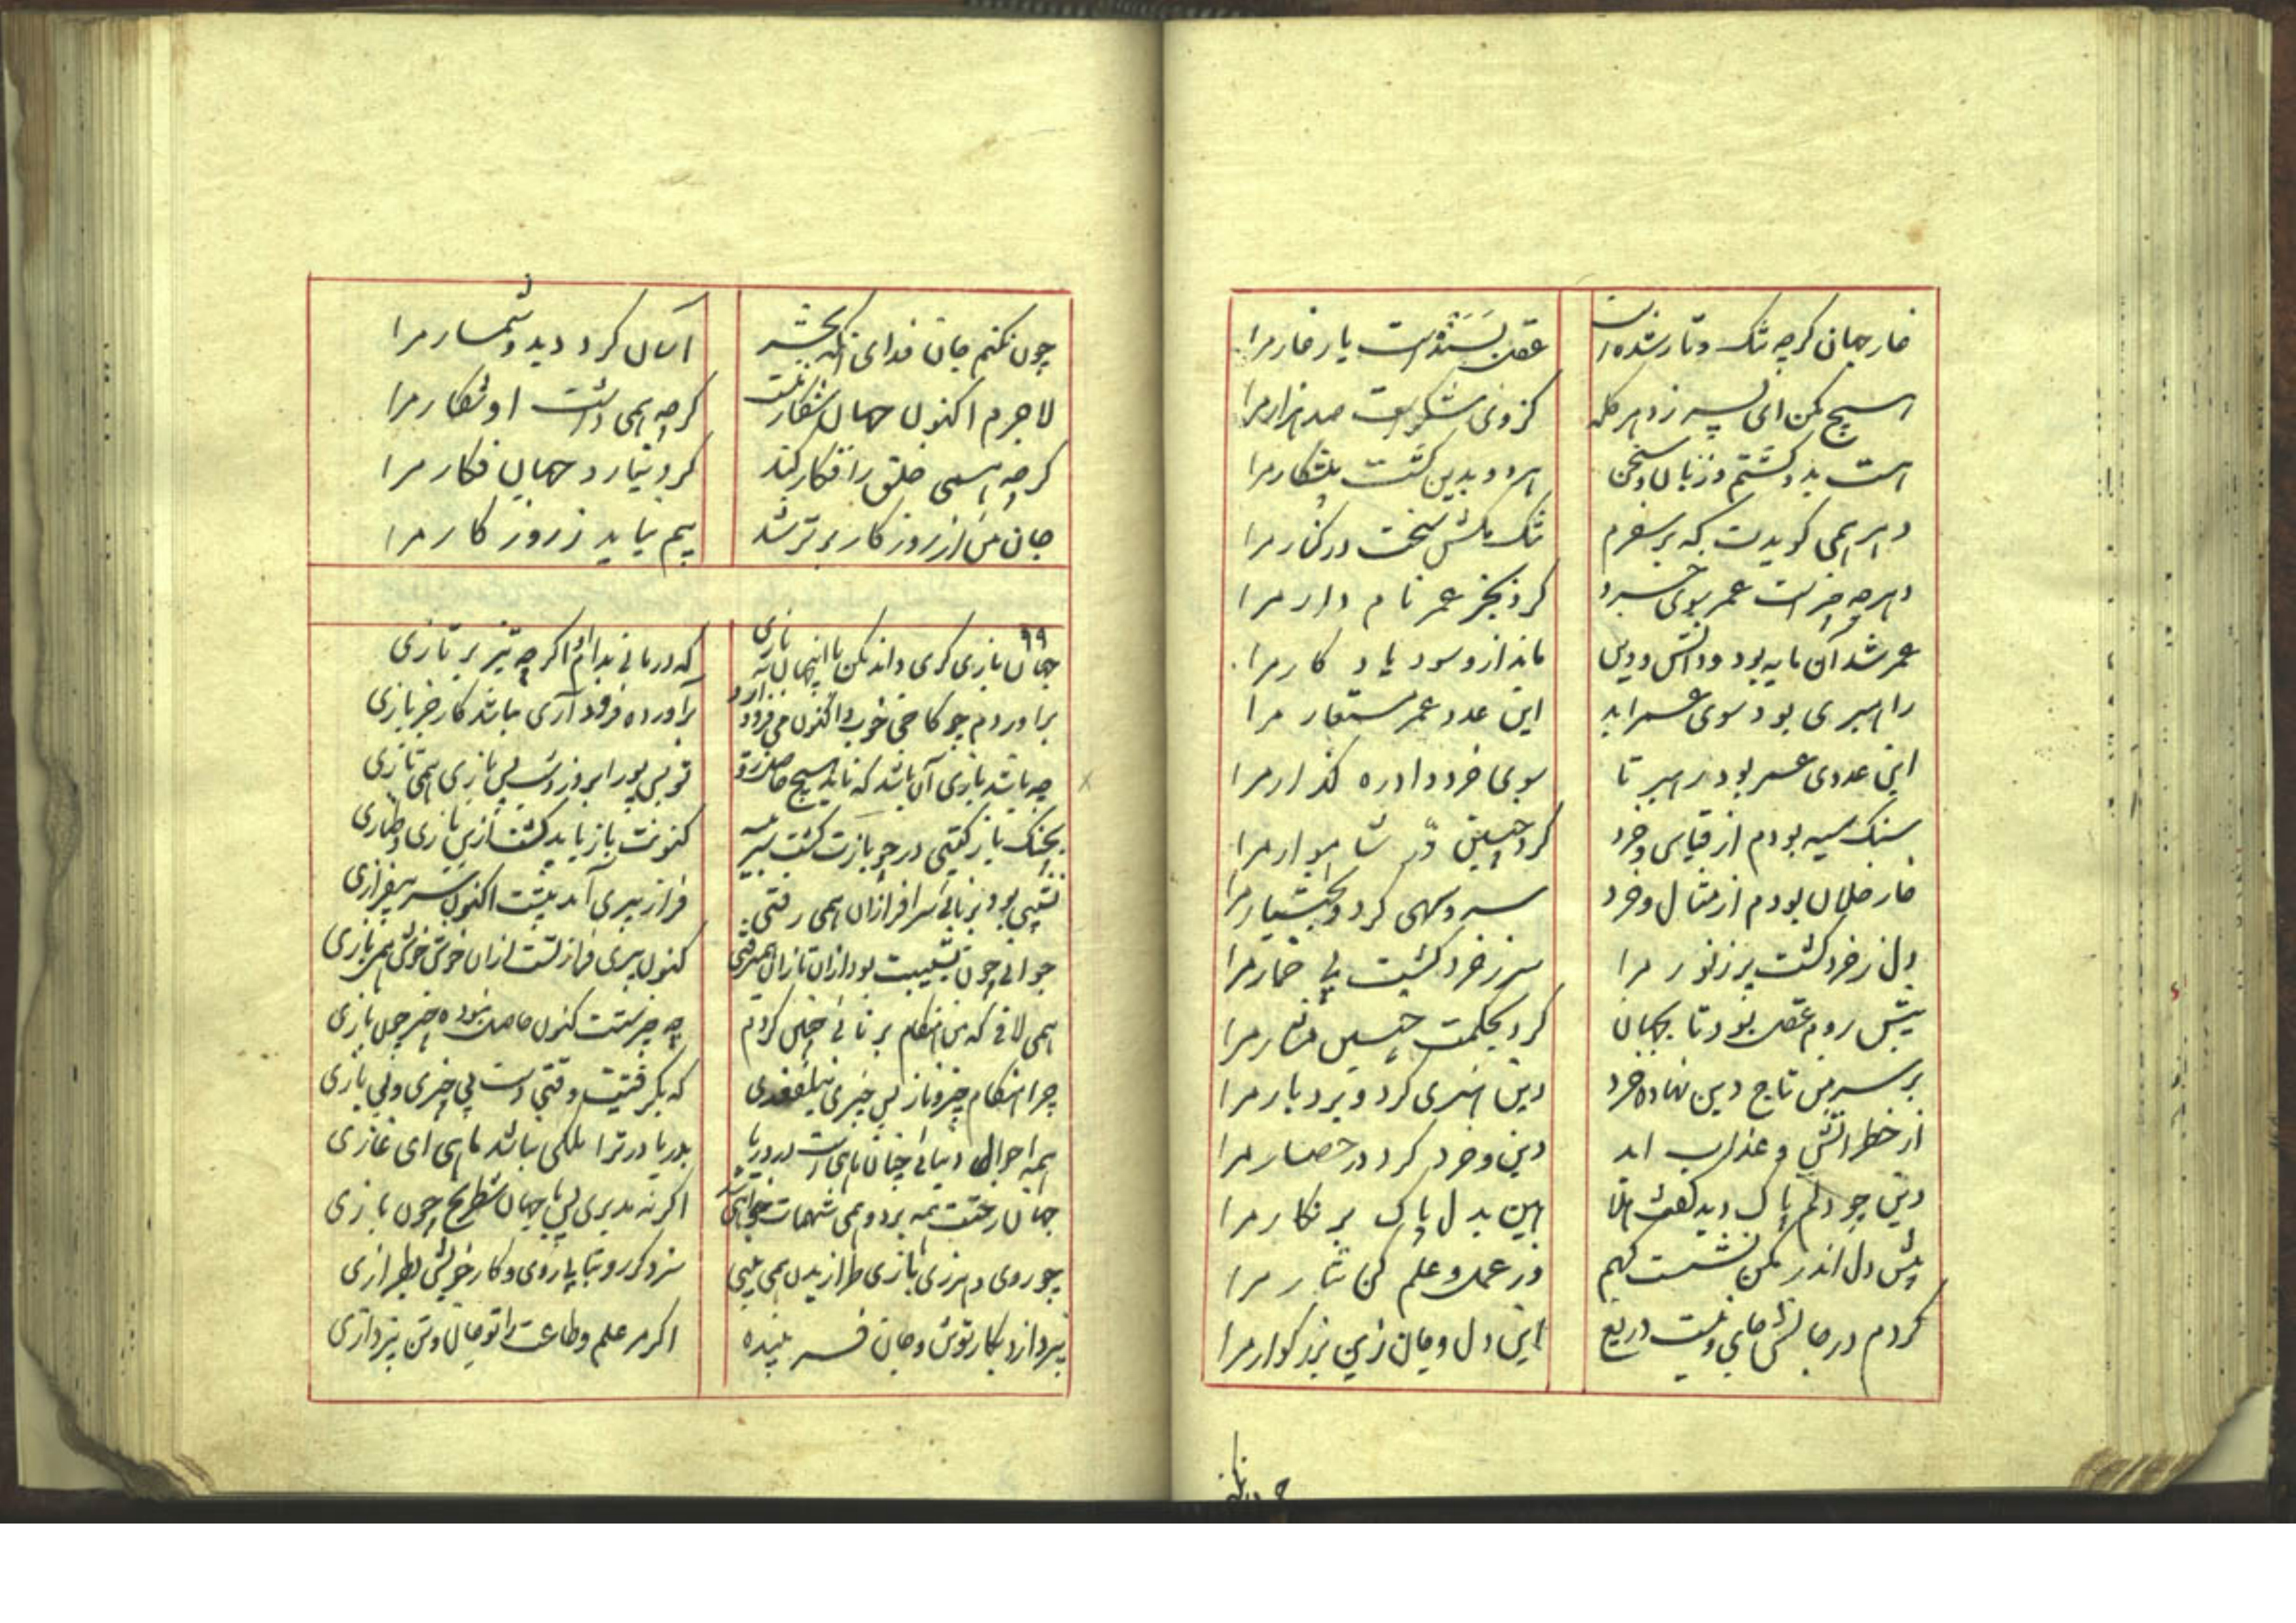 غار جهان گرچه تنگ و تار شده است
عقل بسنده است یار غار مرا
هیچ مکن ای پسر ز دهر گله
کز وی شکر است صد هزار مرا
هست بدو گشتم و زبان و سخن
هر دو بدین گشت پیشکار مرا
دهر همی گویدت که بر سفرم
تنگ مکش سخت در کنار مرا
دهر چه چیز است عمر سوی خرد
کرد بجز عمر نامدار مرا
عمر شد آن مایه بود و دانش و دین
ماند ازو سود یادگار مرا
راهبری بود سوی عمر ابد
این عدد عمر مستعار مرا
این عددی عمر بود رهبر تا
سوی خرد داد ره گذار مرا
سنگ سیه بودم از قیاس و خرد
کرد چنین در شاهوار مرا
خار خلان بودم از مثال و خرد
سرو سهی کرد و بختیار مرا
دل ز خرد گشت پر ز نور مرا
سر ز خرد گشت بی خمار مرا
پیش روم عقل بود تا بجهان
کرد بحکمت چنین مرا
بر سر من تاج دین نهاده خرد
دین هنری کرد و بردبار مرا
از خطر آتش و عذاب ابد
دین و خرد کرد در حصار مرا
دین چو دلم پاک دید گفت هلا
هین بدل پاک بر نگار مرا
پیش دل اندر بکن نشست گهم
وز عمل و علم کن نثار مرا
کردم در جانش جای و نیست دریغ
این دل و جان زین بزرگوار مرا
چون نکنم جان فدای آنکه بحشر
آسان گردد بدو شمار مرا
لاجرم اکنون جهان شکار منست
گرچه همی داشت او شکار مرا
گرچه همی خلق را فگار کند
کرد نیارد جهان فگار مرا
جان من از روزگار برتر شد
بیم نیاید ز روزگار مرا
۹۹
جهان بازی گری داند مکن با این جهان بازی
که درمانی بدام او اگر چه تیز پر بازی
برآوردم چو کاخی خوب و اکنون می فرود آرد
برآورده فرود آری نباشد کار جز بازی
چه باشد بازی آن باشد که ناید هیچ حاصل زو
تو پس پورا بروز و شب پس بازی همی تازی
بچنگ باز گیتی در چو بازت گشت سر پیسه
کنونت باز باید گشت ازین بازی و طنازی
نشیبی بود برنائی سرافرازان همی رفتی
فراز پیری آمد پیشت اکنون سر بیفرازی
جوانی چون نشیبت بود ازان تازان همیرفتی
کنون پیری فرازتست ازان خوش خوش همی یازی
همی لافی که من هنگام برنائی چنین کردم
چه چیزستت کنون حاصل نبوده چیز چون نازی
چرا هنگام چیز و ناز پس چیزی نیلفغدی
که بگرفتیت وقتی دست بی چیزی و بی یاری
همه احوال دنیائی چنان ماهی است در دریا
بدریا در ترا ملکی نباشد ماهی ای غازی
جهان رختت همه برد و همی شهمات خواهی شد
اگر نه مدبری پس با جهان شطرنج چون بازی
چو روی دهر زی بازی طرازیدن همی بینی
سزد گر رو بتابی زوی و کار خویش بطرازی
نپردازد بکار توش و جان فر پنده
اگر مر علم و طاعت را تو جان و تن نپردازی